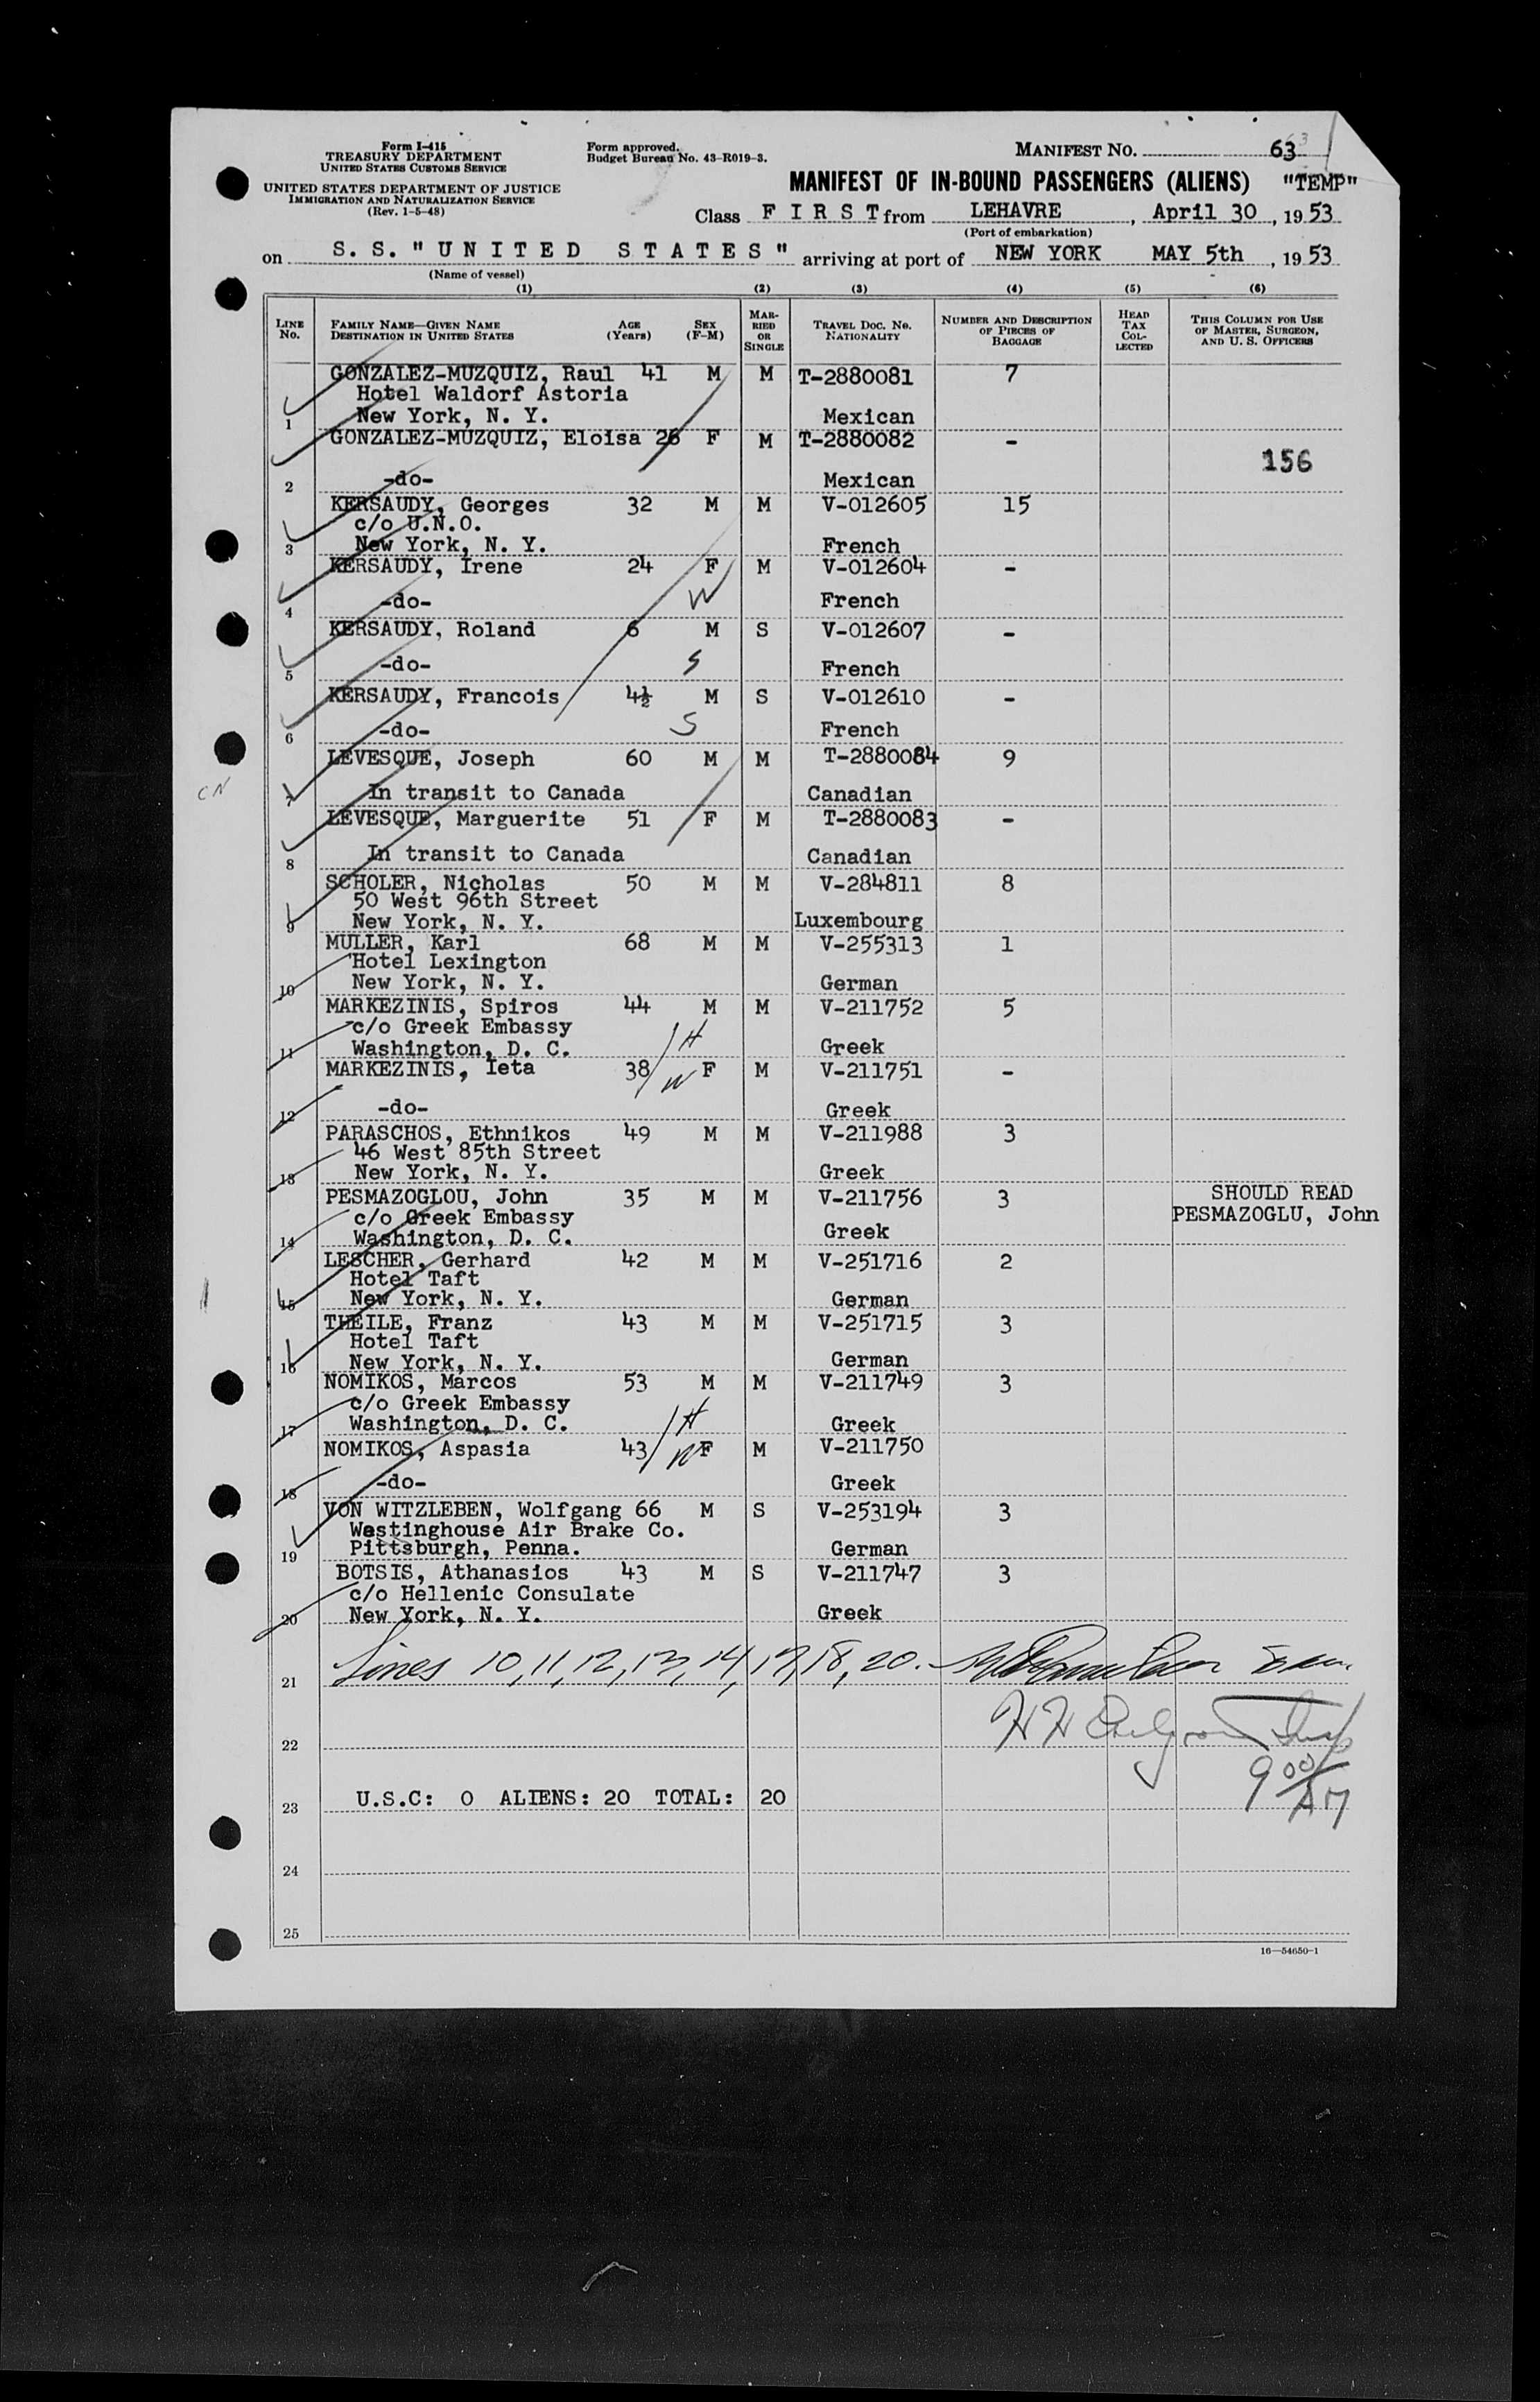 Form I-415
TREASURY DEPARTMENT
UNITED STATES CUSTOMS SERVICE
UNITED STATES DEPARTMENT OF JUSTICE
IMMIGRATION AND NATURALIZATION SERVICE
(Rev. 1-5-48)
Form approved.
Budget Bureau No. 43-R019-3.
MANIFEST NO. 63
MANIFEST OF IN-BOUND PASSENGERS (ALIENS) "TEMP"
Class F I R S T from LEHAVRE, April 30, 1953
(Port of embarkation)
on S. S. "U N I T E D S T A T E S" arriving at port of NEW YORK MAY 5th, 1953
(Name of vessel)
(1) (2) (3) (4) (5) (6)
LINE NO. FAMILY NAME—GIVEN NAME DESTINATION IN UNITED STATES AGE (Years) SEX (F-M) MARRIED OR SINGLE TRAVEL DOC. NO. NATIONALITY NUMBER AND DESCRIPTION OF PIECES OF BAGGAGE HEAD TAX COLLECTED THIS COLUMN FOR USE OF MASTER, SURGEON, AND U. S. OFFICERS
GONZALEZ-MUZQUIZ, Raul 41 M M T-2880081 7
Hotel Waldorf Astoria
1 New York, N. Y. Mexican
GONZALEZ-MUZQUIZ, Eloisa 26 F M T-2880082 -
156
2 -do- Mexican
KERSAUDY, Georges 32 M M V-012605 15
c/o U.N.O.
3 New York, N. Y. French
KERSAUDY, Irene 24 F M V-012604 -
4 -do- W French
KERSAUDY, Roland 6 M S V-012607 -
5 -do- S French
KERSAUDY, Francois 4½ M S V-012610 -
6 -do- S French
LEVESQUE, Joseph 60 M M T-2880084 9
CN 7 In transit to Canada Canadian
LEVESQUE, Marguerite 51 F M T-2880083 -
8 In transit to Canada Canadian
SCHOLER, Nicholas 50 M M V-284811 8
50 West 96th Street
9 New York, N. Y. Luxembourg
MULLER, Karl 68 M M V-255313 1
Hotel Lexington
10 New York, N. Y. German
MARKEZINIS, Spiros 44 M M V-211752 5
c/o Greek Embassy
11 Washington, D. C. H Greek
MARKEZINIS, Ieta 38 W F M V-211751 -
12 -do- Greek
PARASCHOS, Ethnikos 49 M M V-211988 3
46 West 85th Street
13 New York, N. Y. Greek
PESMAZOGLOU, John 35 M M V-211756 3 SHOULD READ
c/o Greek Embassy PESMAZOGLU, John
14 Washington, D. C. Greek
LESCHER, Gerhard 42 M M V-251716 2
Hotel Taft
15 New York, N. Y. German
THEILE, Franz 43 M M V-251715 3
Hotel Taft
16 New York, N. Y. German
NOMIKOS, Marcos 53 M M V-211749 3
c/o Greek Embassy
17 Washington, D. C. H Greek
NOMIKOS, Aspasia 43 W F M V-211750
18 -do- Greek
VON WITZLEBEN, Wolfgang 66 M S V-253194 3
Westinghouse Air Brake Co.
19 Pittsburgh, Penna. German
BOTSIS, Athanasios 43 M S V-211747 3
c/o Hellenic Consulate
20 New York, N. Y. Greek
21 Lines 10, 11, 12, 13, 14, 17, 18, 20.
22
9 00/AM
23 U.S.C: 0 ALIENS: 20 TOTAL: 20
24
25
16—54650-1